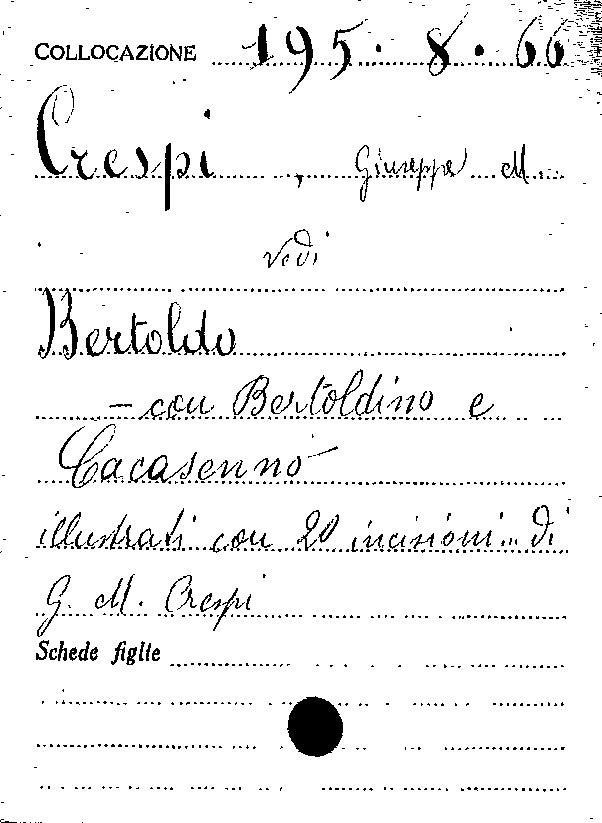 COLLOCAZIONE 195. 8. 66
Crespi, Giuseppe M.
vedi
Bertoldo
- con Bertoldino e
Cacasenno
illustrati con 20 incisioni... di
G. M. Crespi
Schede figlie